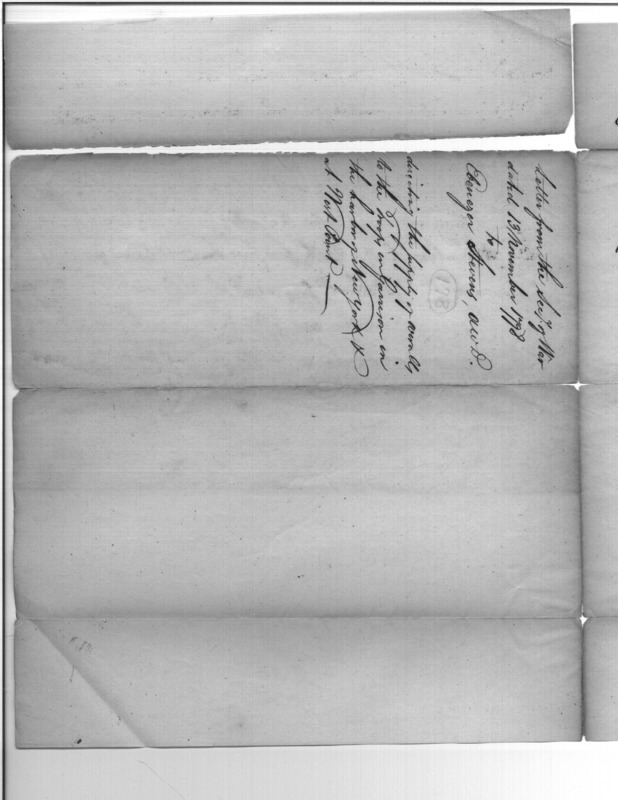 Letter from the Secy of War
dated 13 November 1798
to
Ebenezer Stevens, AWD.
178
directing the supply of
to the troops in Garrison in
the harbor of New York &
at West Point